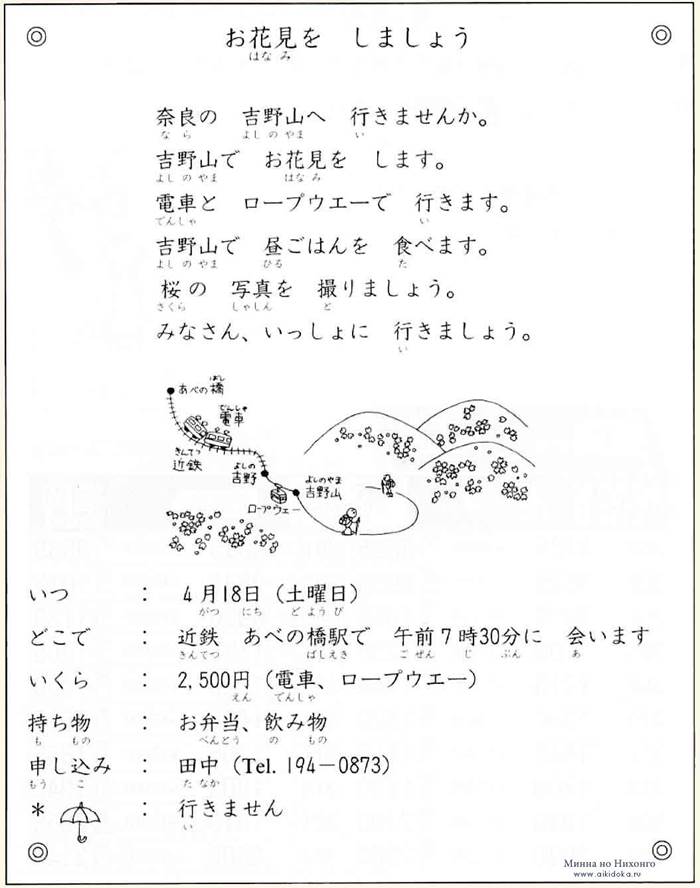 お花見を しましょう
はなみ
奈良の 吉野山へ 行きませんか。
なら よしのやま い
吉野山で お花見を します。
よしのやま はなみ
電車と ロープウエーで 行きます。
でんしゃ い
吉野山で 昼ごはんを 食べます。
よしのやま ひる た
桜の 写真を 撮りましょう。
さくら しゃしん と
みなさん、いっしょに 行きましょう。
い
ばし
あべの橋
でんしゃ
電車
きんてつ
近鉄
よしの
吉野
よしのやま
吉野山
ロープウェー
いつ : 4月18日(土曜日)
がつ にち どようび
どこで : 近鉄 あべの橋駅で 午前7時30分に 会います
きんてつ ばしえき ごぜん じ ぷん あ
いくら : 2,500円(電車、ロープウエー)
えん でんしゃ
持ち物 : お弁当、飲み物
も もの べんとう の もの
申し込み : 田中(Tel. 194-0873)
もう こ たなか
* : 行きません
い
Минна но Нихонго
www.aikidoka.ru